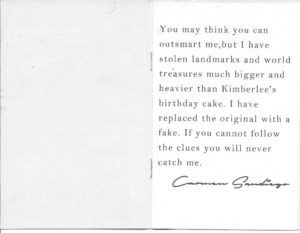 You may think you can
outsmart me,but I have
stolen landmarks and world
treasures much bigger and
heavier than Kimberlee's
birthday cake. I have
replaced the original with a
fake. If you cannot follow
the clues you will never
catch me.
Carmen Sandiego